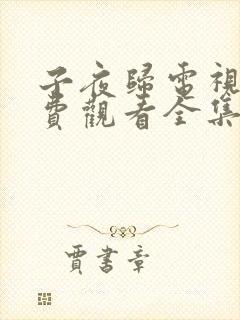 子夜歸電視
費觀看全集
賈書章